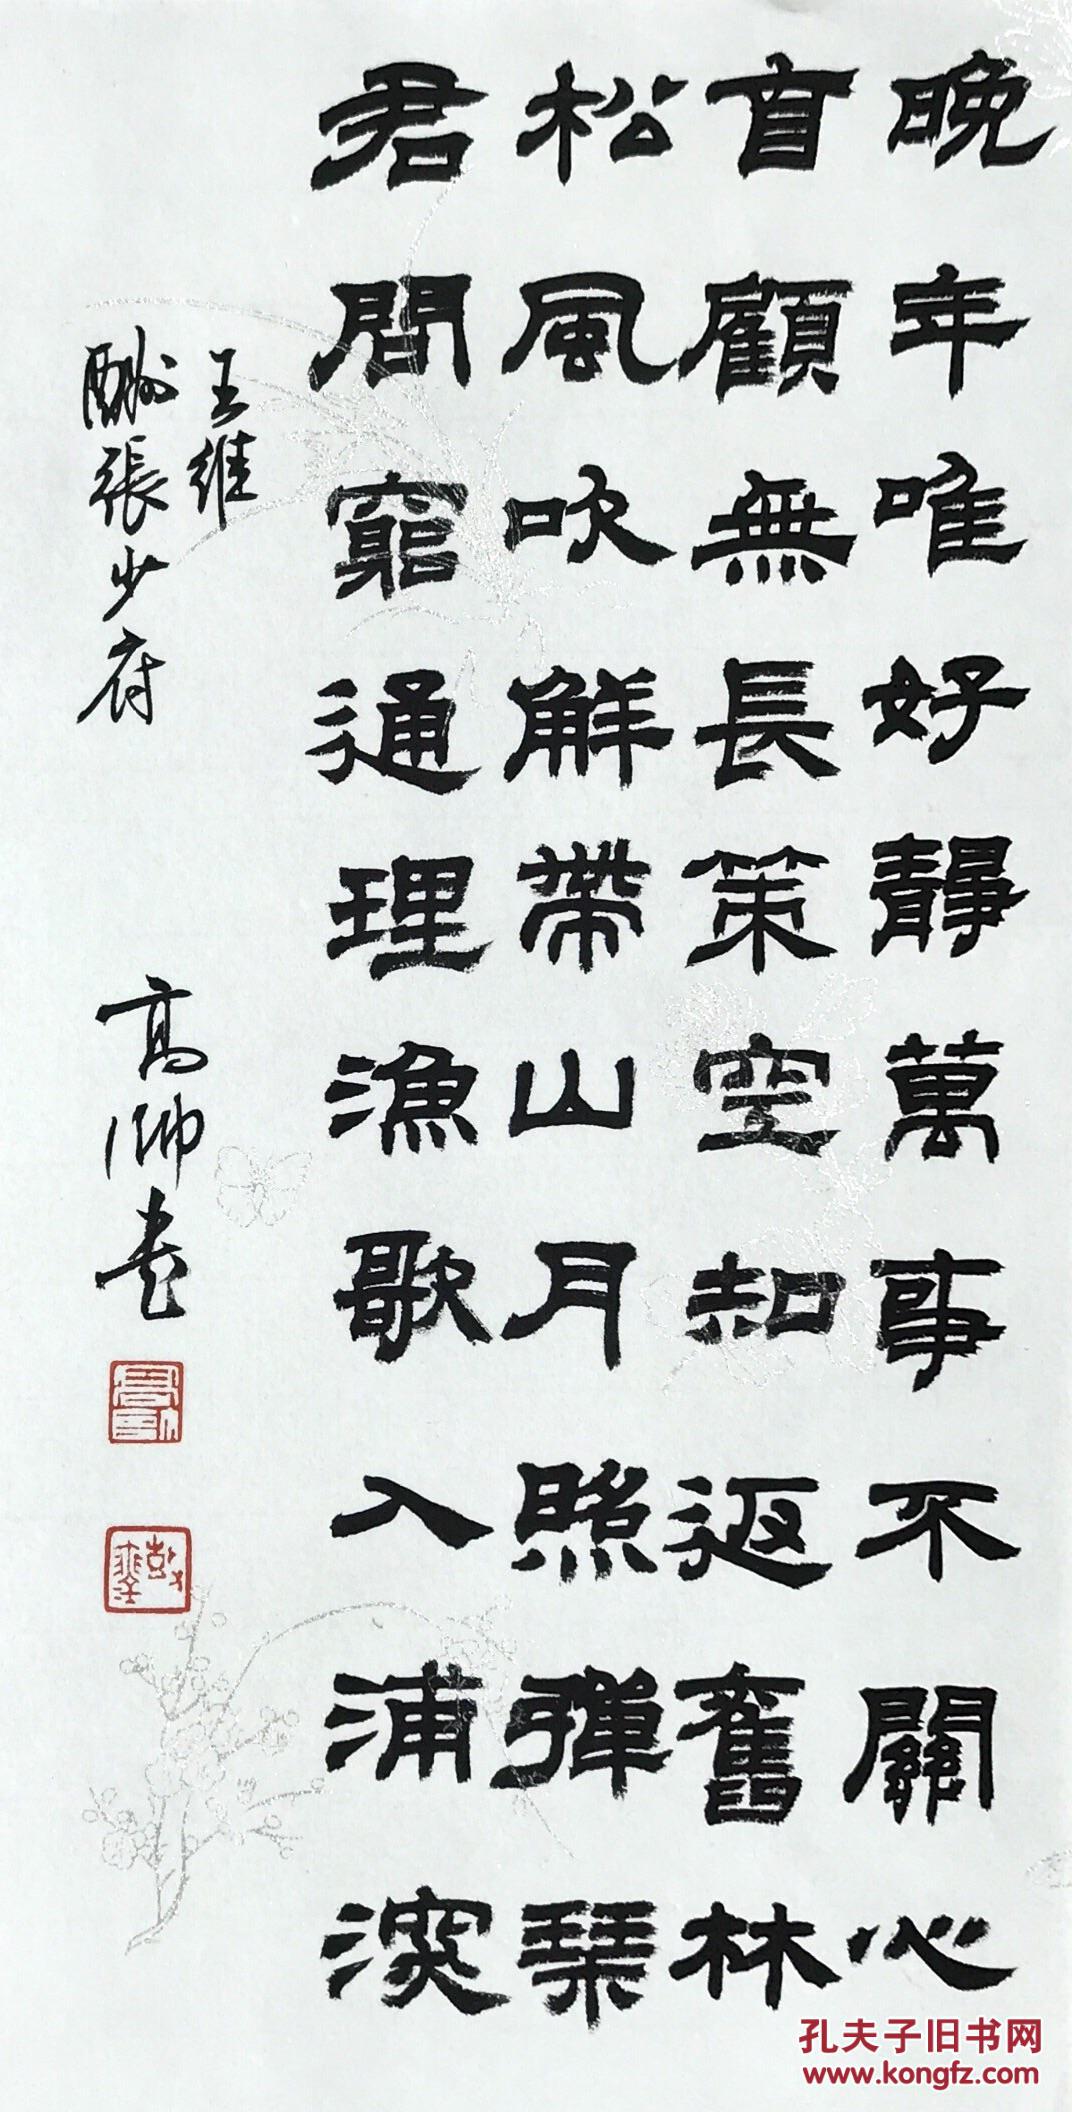 晚年唯好靜萬事不關心
首顧無長策空知返舊林
松風吹解帶山月照彈琴
君問窮通理漁歌入浦深
王維
酬張少府
高帥書
孔夫子旧书网
www.kongfz.com